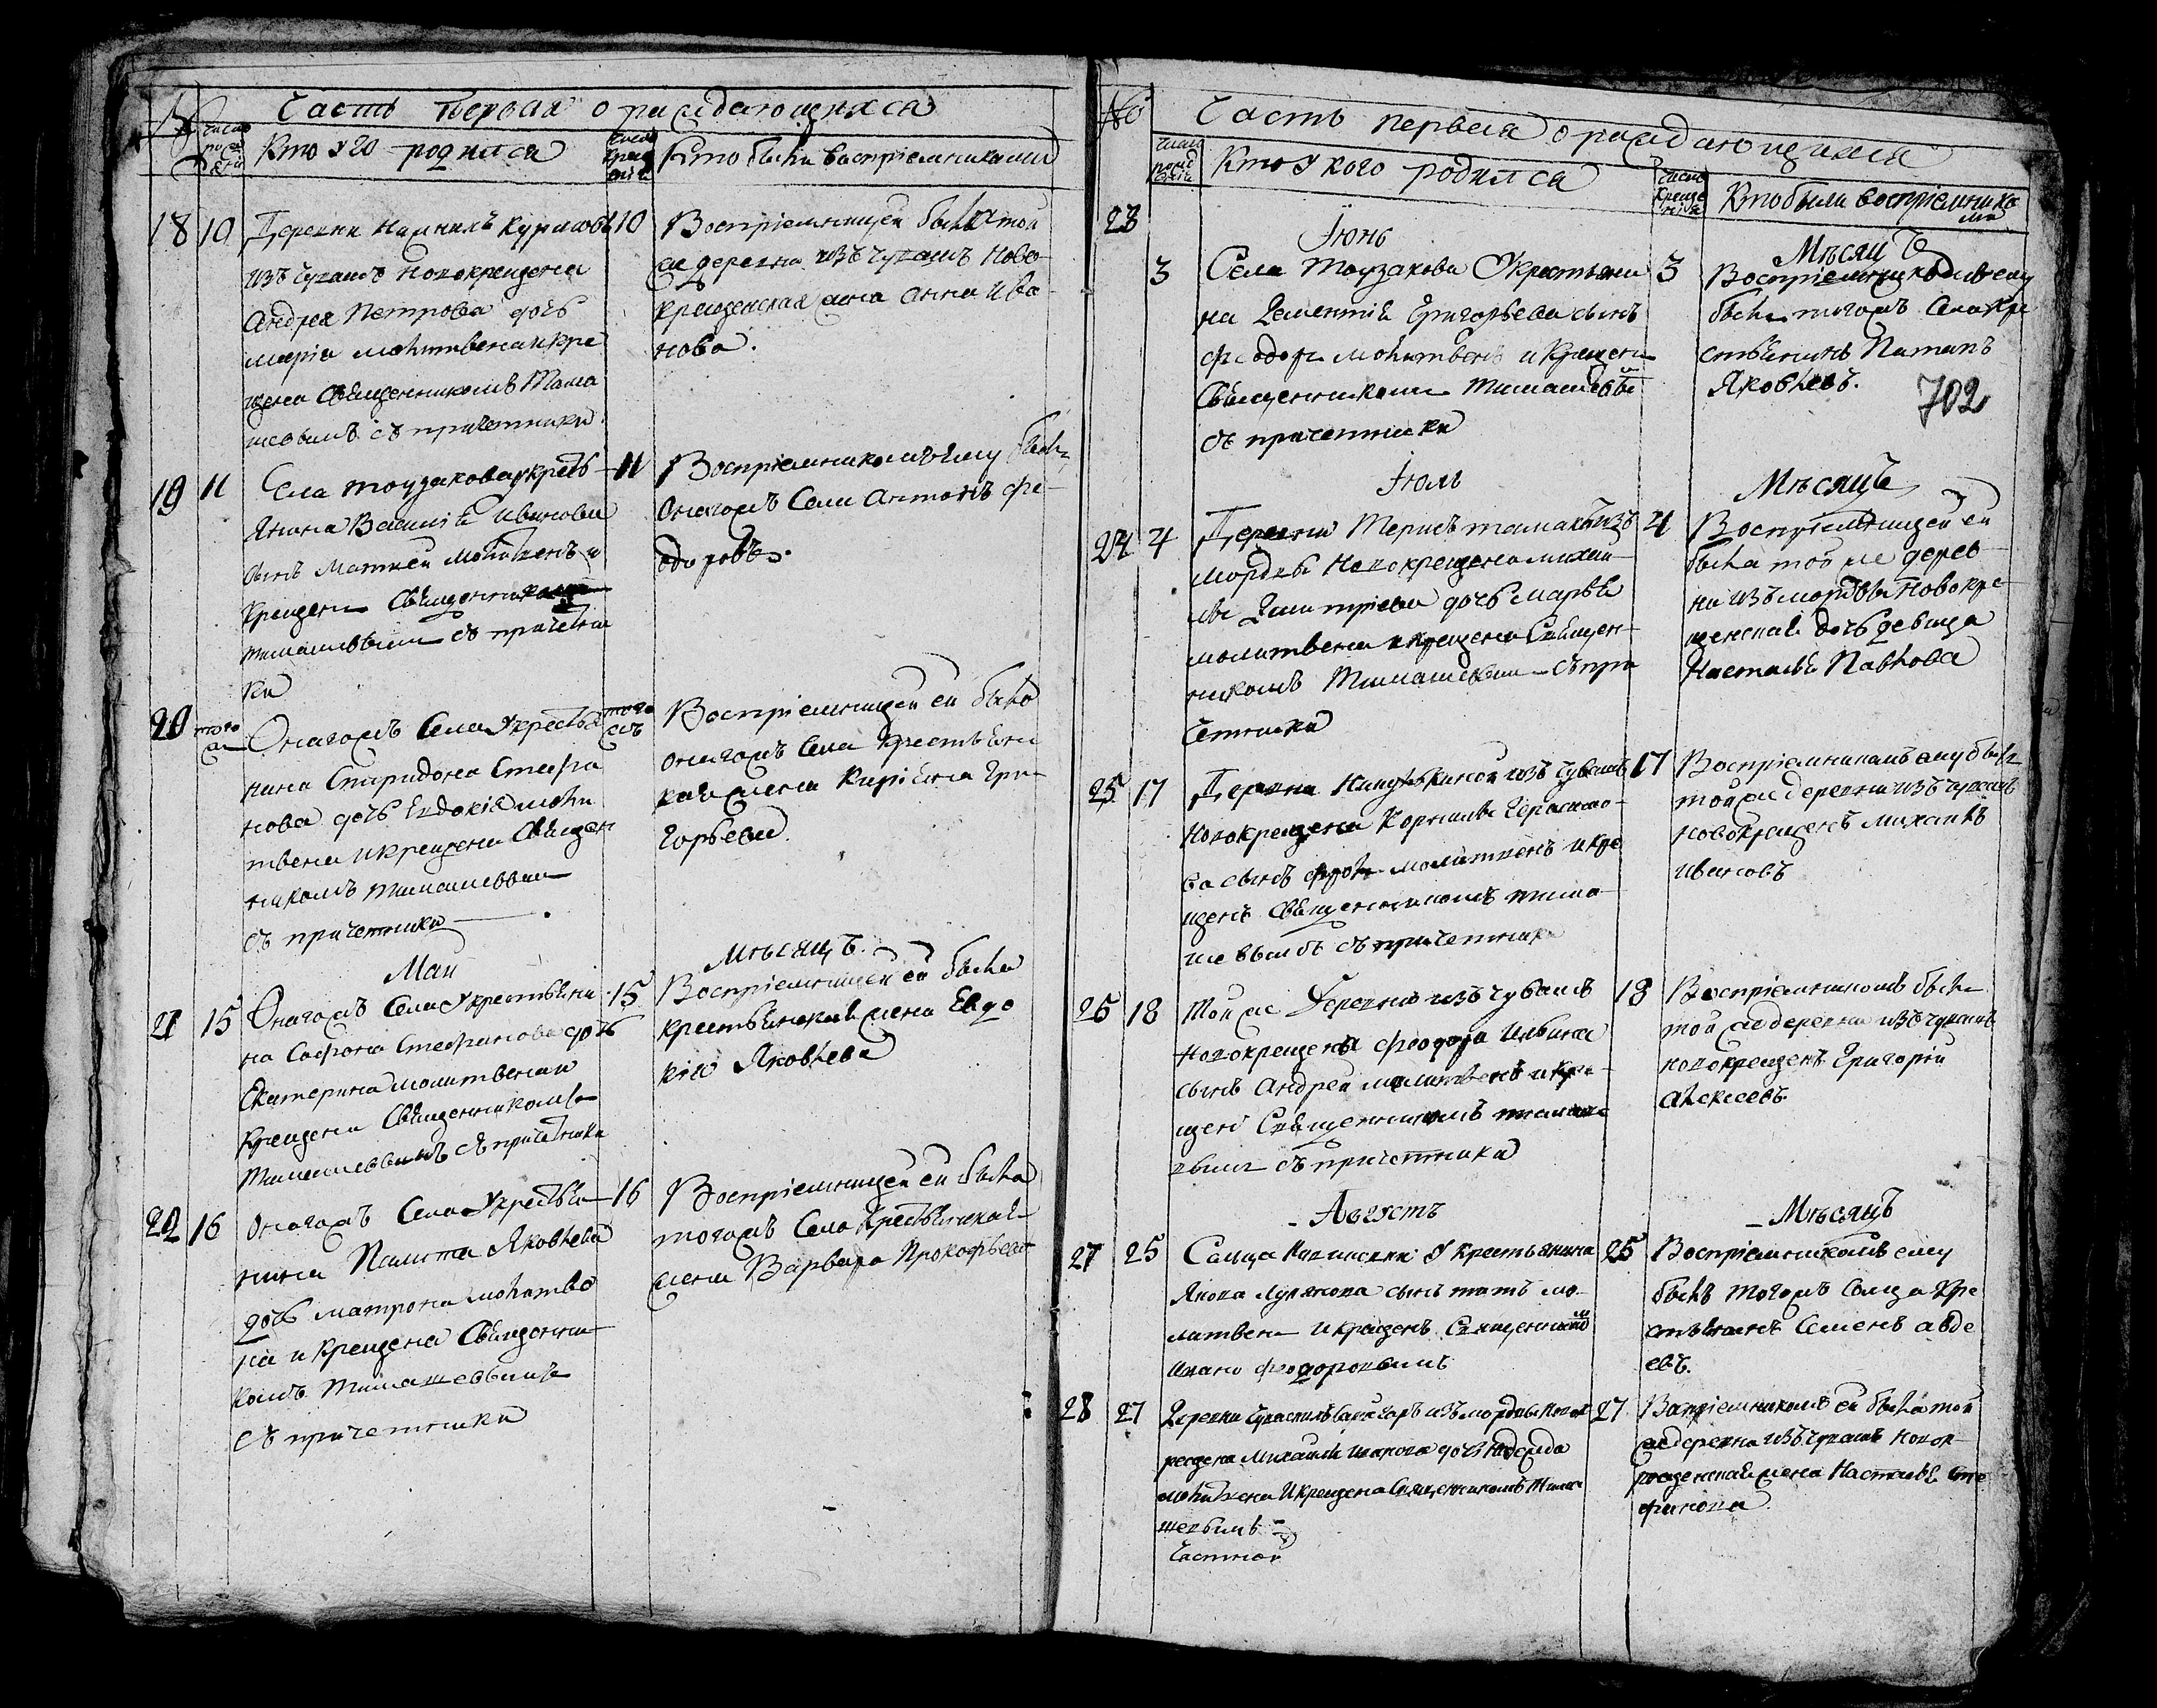 №
Часть первая о раждающихся
число рождения
Кто у ково родился
число крещения
Кто были восприемниками
18 10
из чувашъ новокрещена
Андрея Петрова дочь
Марiя молитвена и кре
щена священникомъ Тима
шевымъ съ причетники
10
Воспрiемницей была той
же деревни изъ чувашъ ново
крещенская жена Анна Ива
нова.
19 11
Села Тоузакова у крест
янина Василiя Иванова
сынъ Матвей молитвенъ и
крещенъ священникомъ
Тимашевымъ съ причетни
ки
11
Воспрiемникомъ ему былъ
онагожъ села Антонъ Фе
одоровъ.
20 того ж
Онагожъ села у крестья
нина Спиридона Стефа
нова дочь Евдокiя моли
твена и крещена священ
никомъ Тимашевымъ
съ причетники
того жъ
Воспрiемницей ей была
онагожъ села крестьянс
кая жена Гри
горьева
Май
Мѣсяцъ.
21 15
Онагожъ села у крестьяни
на Сафона Стефанова дочь
Екатерина молитвена и
крещена священникомъ
Тимашевымъ съ причетники
15
Воспрiемницей ей была
крестьянская жена Евдо
кiя Яковлева
22 16
Онагожъ села у крестья
нина Яковлева
дочь Матрона молитве
на и крещена священни
комъ Тимашевымъ
съ причетники
16
Воспрiемницей ей была
тогожъ села крестьянская
жена Варвара Прокофьева
№
Часть первая о раждающихся
число рожденiя
Кто у кого родился
число крещенiя
Кто были воспрiемника
ми
23
Iюнь
Мѣсяцъ
3
Села Тоузакова у крестьяни
на Дементiя Григорьева сынъ
Феодоръ молитвенъ и крещенъ
священникомъ Тимашевымъ
съ причетники
3
Воспрiемникомъ ему
былъ тогожъ села кре
стьянинъ Потапъ
Яковлевъ.
702
Iюль
Мѣсяцъ
24 4
мордвы новокрещена Михаи
лы Дмитрiева дочь Марья
молитвена и крещена священ
никомъ Тимашевымъ съ при
четники
4
Воспрiемницей ей
была той же дерев
ни изъ мордвы новокре
щенская дочь девица
Настасья Павлова
25 17
новокрещена Корнилы Герасимо
ва сынъ молитвенъ и кре
щенъ священникомъ Тима
шевымъ съ причетники
17
Воспрiемникомъ ему былъ
той же деревни изъ чувашъ
новокрещенъ Михайла
Ивановъ
26 18
Той же деревни изъ чувашъ
новокрещена Феодора Ильина
сынъ Андрей молитвенъ и кре
щенъ священникомъ Тимаше
вымъ съ причетники
18
Воспрiемникомъ былъ
той же деревни изъ чувашъ
новокрещенъ Григорий
Алексеевъ.
Августъ
Мѣсяцъ
27 25
у крестьянина
Якова Лукянова сынъ мо
литвенъ и крещенъ священникомъ
Иваномъ Феодоровымъ
25
Воспрiемникомъ ему
былъ тогожъ сельца кре
стьянинъ Семенъ Авде
евъ.
28 27
Деревни изъ мордвы новок
рещена Михайлы дочь Надежда
молитвена и крещена священникомъ Тима
шевымъ
27
Воспрiемникомъ ей была той
же деревни изъ чувашъ новок
рещенская жена Настасья Сте
фанова